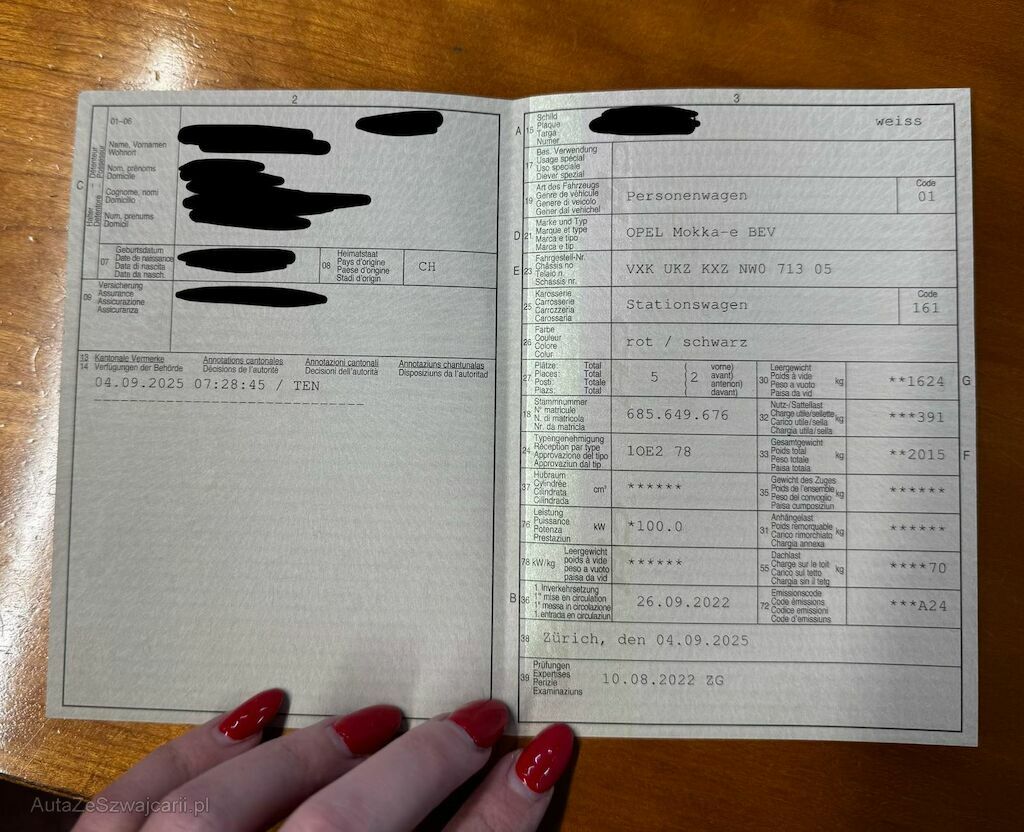 2
01-06
C
Halter - Détenteur
Detentore - Possessur
Name, Vornamen
Wohnort
Nom, prénoms
Domicile
Cognome, nomi
Domicilio
Num, prenums
Domicil
07
Geburtsdatum
Date de naissance
Data di nascita
Data da nasch.
08
Heimatstaat
Pays d'origine
Paese d'origine
Stadi d'origin
CH
09
Versicherung
Assurance
Assicurazione
Assicuranza
13
14
Kantonale Vermerke
Verfügungen der Behörde
Annotations cantonales
Décisions de l'autorité
Annotazioni cantonali
Decisioni dell'autorità
Annotaziuns chantunalas
Disposiziuns da l'autoritad
04.09.2025 07:28:45 / TEN
3
A
15
Schild
Plaque
Targa
Numer
weiss
17
Bes. Verwendung
Usage spécial
Uso speciale
Diever spezial
19
Art des Fahrzeugs
Genre de véhicule
Genere di veicolo
Gener dal vehichel
Personenwagen
Code
01
D
21
Marke und Typ
Marque et type
Marca e tipo
Marca e tip
OPEL Mokka-e BEV
E
23
Fahrgestell-Nr.
Châssis no
Telaio n.
Schassis nr.
VXK UKZ KXZ NW0 713 05
25
Karosserie
Carrosserie
Carrozzeria
Carossaria
Stationswagen
Code
161
26
Farbe
Couleur
Colore
Colur
rot / schwarz
27
Plätze: Total
Places: Total
Posti: Totale
Plazs: Total
5
2
vorne)
avant)
anteriori)
davant)
30
Leergewicht
Poids à vide
Peso a vuoto
Paisa da vid
kg
**1624
G
18
Stammnummer
N° matricule
N. di matricola
Nr. da matricla
685.649.676
32
Nutz-/Sattellast
Charge utile/sellette
Carico utile/sella
Chargia utila/sella
kg
***391
24
Typengenehmigung
Réception par type
Approvazione del tipo
Approvaziun dal tip
1OE2 78
33
Gesamtgewicht
Poids total
Peso totale
Paisa totala
kg
**2015
F
37
Hubraum
Cylindrée
Cilindrata
Cilindrada
cm³
******
35
Gewicht des Zuges
Poids de l'ensemble
Peso del convoglio
Paisa cumposiziun
kg
******
76
Leistung
Puissance
Potenza
Prestaziun
kW
*100.0
31
Anhängelast
Poids remorquable
Carico rimorchiato
Chargia annexa
kg
******
78 kW/kg
Leergewicht
poids à vide
peso a vuoto
paisa da vid
******
55
Dachlast
Charge sur le toit
Carico sul tetto
Chargia sin il tetg
kg
****70
B
36
1. Inverkehrsetzung
1re mise en circulation
1a messa in circolazione
1. entrada en circulaziun
26.09.2022
72
Emissionscode
Code émissions
Codice emissioni
Code d'emissiuns
***A24
38
Zürich, den 04.09.2025
39
Prüfungen
Expertises
Perizie
Examinaziuns
10.08.2022 ZG
AutaZeSzwajcarii.pl